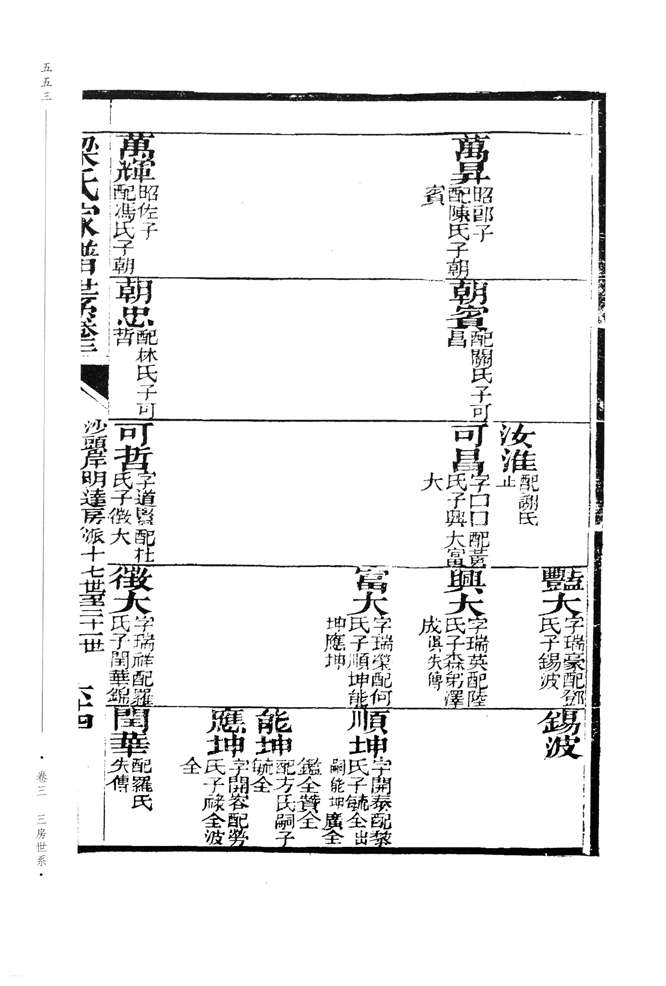 五五三
萬昇
昭郎子
配陳氏子朝
賓
萬輝
昭佐子
配馮氏子朝
朝賓
配關氏子可
昌
朝忠
配林氏子可
哲
汝淮
配謝氏
止
可昌
字口口配黃
氏子興大富
大
可哲
字道賢配杜
氏子徵大
豔大
字瑞豪配鄧
氏子錫波
興大
字瑞英配陸
氏子森弟澤
成俱失傳
富大
字瑞榮配何
氏子順坤能
坤應坤
徵大
字瑞祥配羅
氏子閏華錦
錫波
順坤
字開泰配黎
氏子毓全出
嗣能坤廣全
鑑全贊全
能坤
配方氏嗣子
毓全
應坤
字開容配勞
氏子祿全波
全
閏華
配羅氏
失傳
梁氏家譜世系卷三
沙頭岸明達房派十七世至二十一世
六十四
·卷三 三房世系·